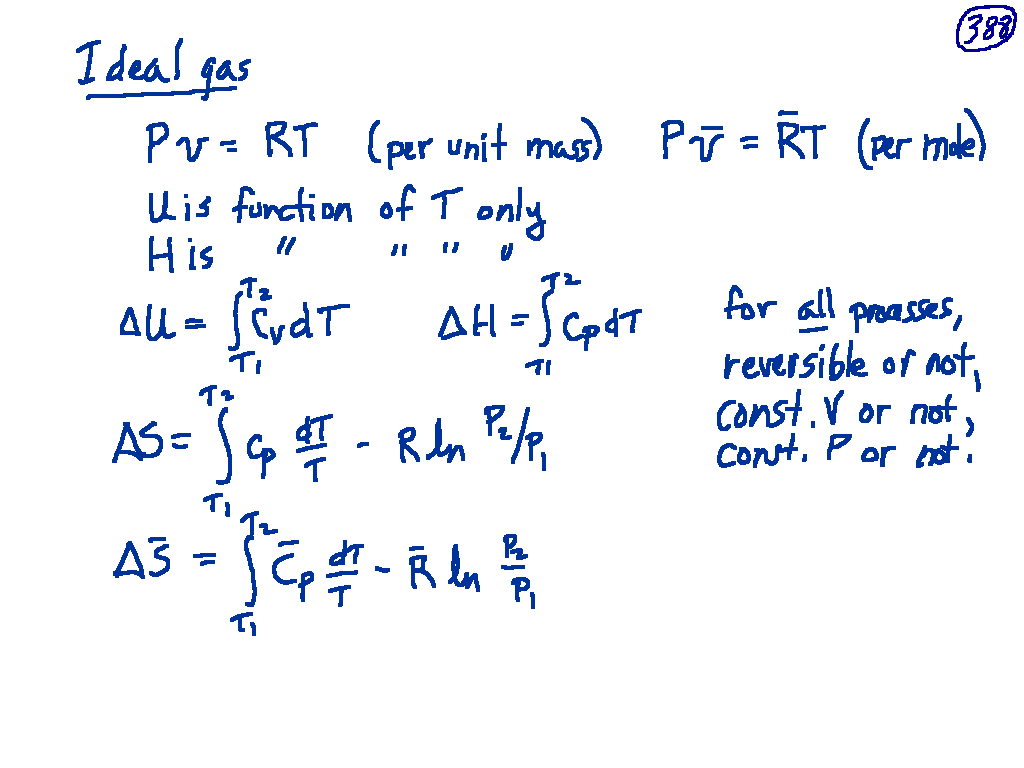 388
Ideal gas
Pv = RT (per unit mass) Pv̄ = R̄T (per mole)
U is function of T only
H is " " " "
ΔU = ∫_{T1}^{T2} C_v dT ΔH = ∫_{T1}^{T2} C_p dT
for all processes,
reversible or not,
const. V or not,
const. P or not.
ΔS = ∫_{T1}^{T2} C_p dT/T - R ln P2/P1
ΔS̄ = ∫_{T1}^{T2} C̄_p dT/T - R̄ ln P2/P1